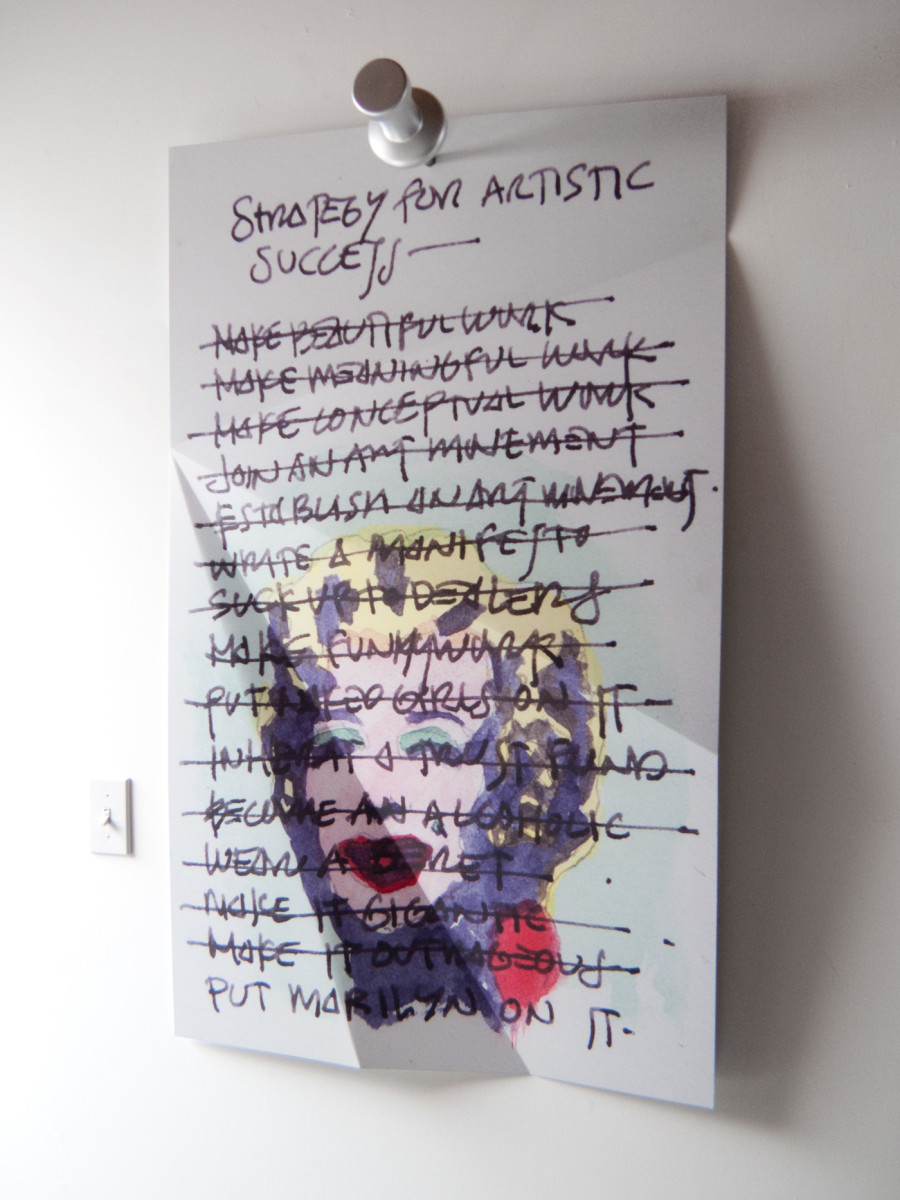 STRATEGY FOR ARTISTIC
SUCCESS —
MAKE BEAUTIFUL WORK
MAKE MEANINGFUL WORK
MAKE CONCEPTUAL WORK
JOIN AN ART MOVEMENT
ESTABLISH AN ART MOVEMENT.
WRITE A MANIFESTO
SUCK UP TO DEALERS
MAKE FUNKY WORK
PUT NAKED GIRLS ON IT
INHERIT A TRUST FUND
BECOME AN ALCOHOLIC
WEAR A BERET
MAKE IT GIGANTIC
MAKE IT OUTRAGEOUS
PUT MARILYN ON IT.